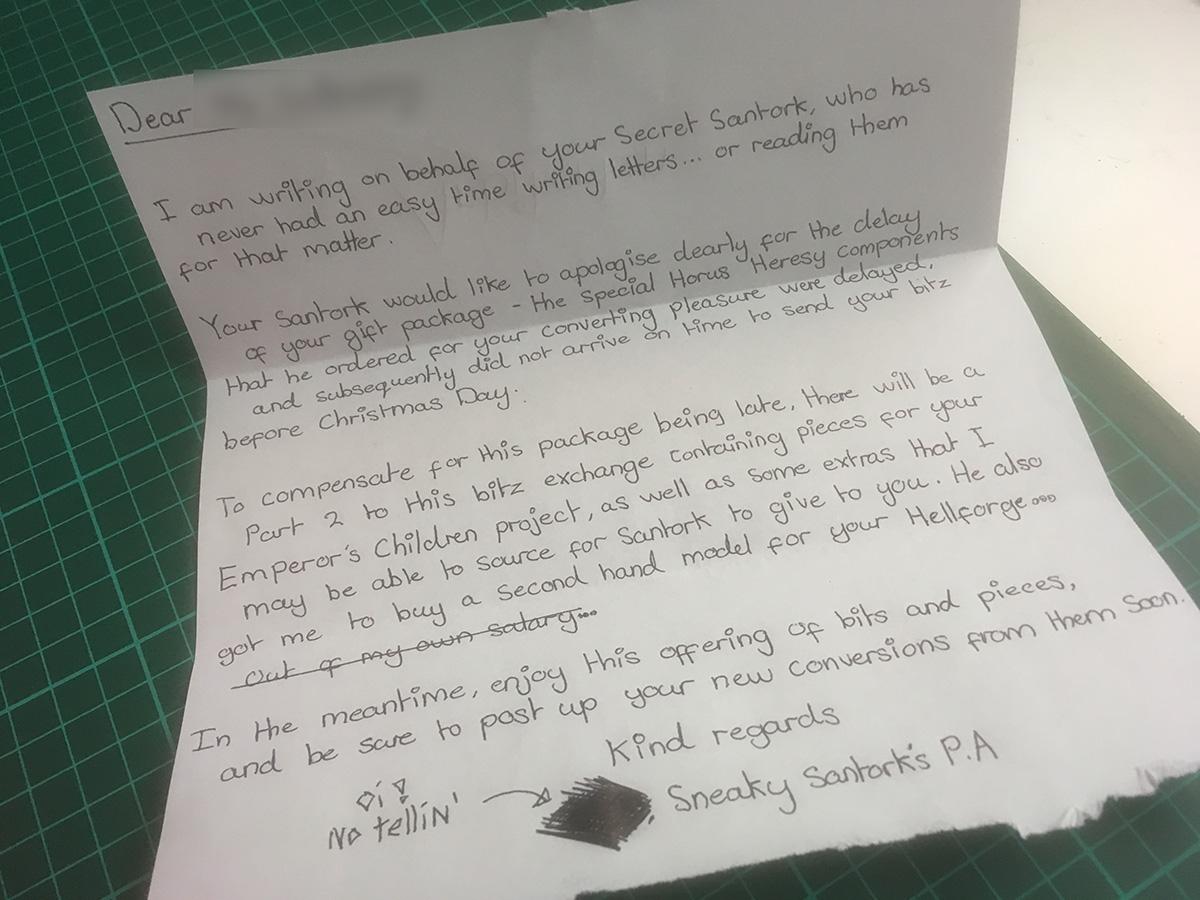 Dear
I am writing on behalf of your Secret Santork, who has
never had an easy time writing letters... or reading them
for that matter.
Your Santork would like to apologise dearly for the delay
of your gift package - the special Horus Heresy components
that he ordered for your converting pleasure were delayed,
and subsequently did not arrive on time to send your bitz
before Christmas Day.
To compensate for this package being late, there will be a
Part 2 to this bitz exchange containing pieces for your
Emperor's Children project, as well as some extras that I
may be able to source for Santork to give to you. He also
got me to buy a second hand model for your Hellforge...
out of my own salary...
In the meantime, enjoy this offering of bits and pieces,
and be sure to post up your new conversions from them soon.
Kind regards
Oi!
No tellin'
, Sneaky Santork's P.A